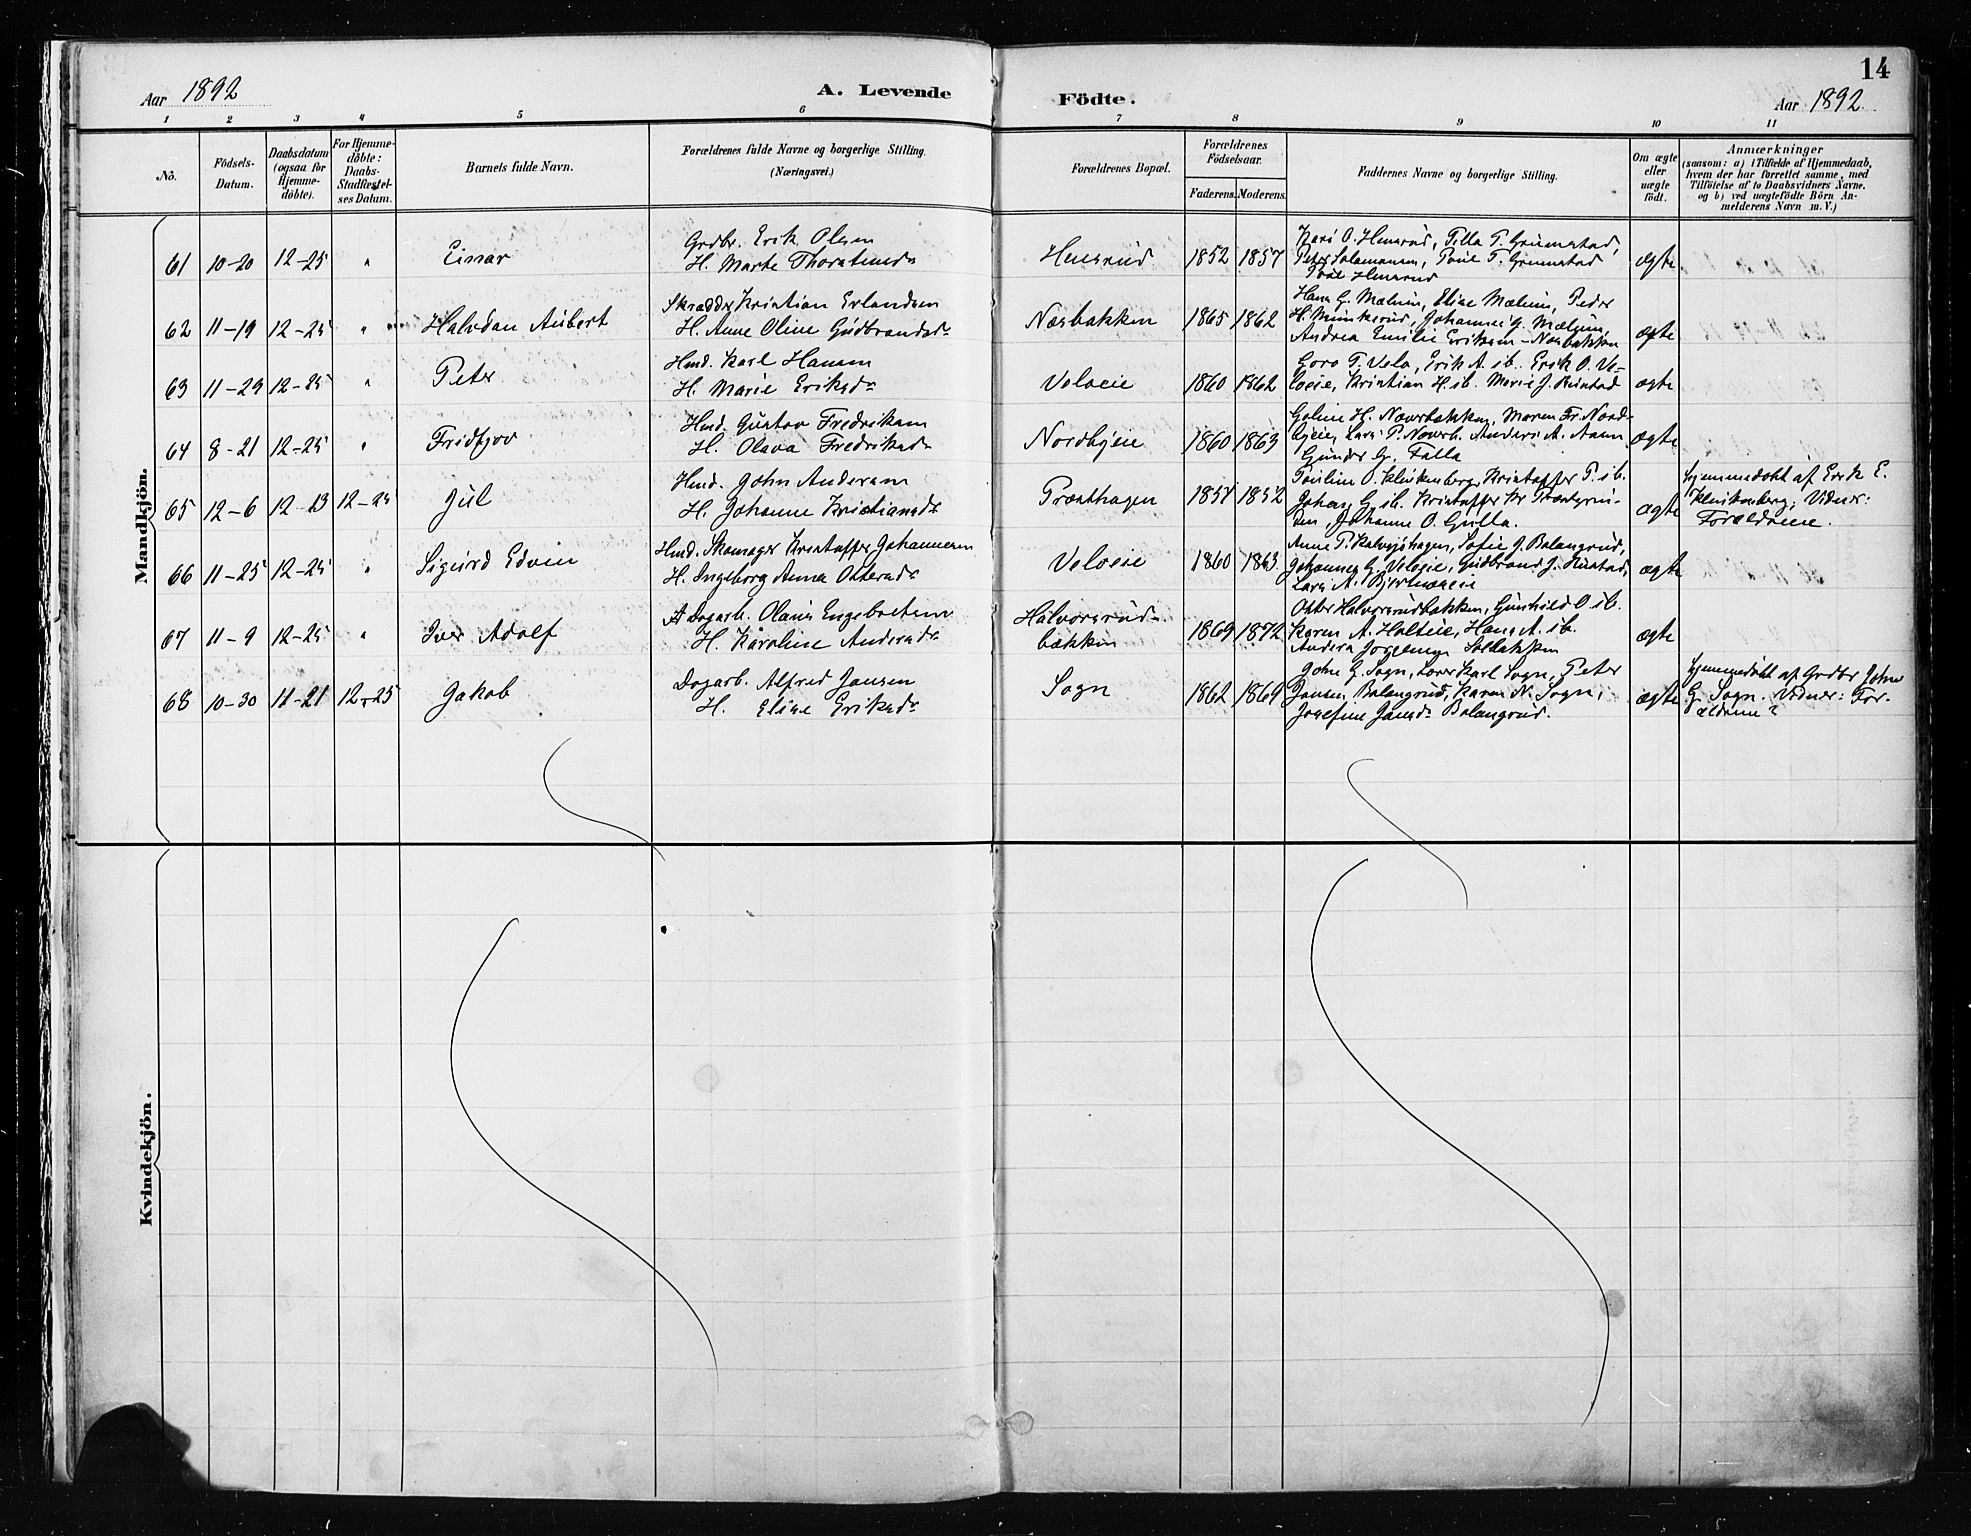 14
Aar 1892
A. Levende Födte.
Aar 1892.
1 2 3 4 5 6 7 8 9 10 11
No.
Födsels-Datum.
Daabsdatum (ogsaa for Hjemme-döbte).
For Hjemme-döbte: Daabs-Stadfæstel-ses Datum.
Barnets fulde Navn.
Forældrenes fulde Navne og borgerlige Stilling. (Næringsvei.)
Forældrenes Bopæl.
Forældrenes Födselsaar.
Faderens. Moderens.
Faddernes Navne og borgerlige Stilling.
Om ægte eller uægte födt.
Anmærkninger
(saasom: a) i Tilfælde af Hjemmedaab,
hvem der har forrettet samme, med
Tilföielse af to Daabsvidners Navne.
og b) ved uægtefödte Börn An-
melderens Navn m. V.)
Mandkjön.
61 10-20 12-25 " Einar
Grdbr. Erik Olsen
H. Marte Thorstensdr
Hensrud 1852 1857
Kari O. Hensrud, Pilla T. Grimstad,
Peter Salamonsen, Poul T. Grimstad
Hensrud
ægte
62 11-19 12-25 " Halvdan Aubert
Skrædder Kristian Erlandsen
H. Anne Oline Gudbrandsdr
Næsbakken 1865 1862
Hans G. Mælum, Elise Mælum, Peder
H. Munkerud, Johannes G. Mælum,
Andrea Emilie Eriksen-Næsbakken
ægte
63 11-29 12-25 " Peter
Hmd. Karl Hansen
H. Marie Eriksdr
Veloeie 1860 1862
Goro T. Velo, Erik A. ib. Erik O. Ve-
loeie, Kristian H. ib. Marie J. Rustad
ægte
64 8-21 12-25 " Fridtjov
Hmd. Gustav Fredriksen
H. Olava Fredriksdr
Nordbyeie 1860 1863
Goline H. Næverbakken, Maren Fr. Nord-
byeie, Lars P. Næverb. Anders A. Aann
Gunder G. Falla
ægte
65 12-6 12-13 12-25 Jul
Hmd. John Andersen
H. Johanne Kristiansdr
Præsthagen 1857 1852
Pauline O. Klinkenberg, Kristoffer P. ib.
Johans G. ib. Kristoffer Kr.
Johanne O. Gulla.
ægte
Hjemmedøbt af Erik E.
Klinkenberg, Vidner:
Forældrene.
66 11-25 12-25 " Sigurd Edvin
Hmd. Skomager Kristoffer Johannesen
H. Ingeborg Anna Ottersdr
Veloeie 1860 1863
Anne P. Kalvsjøhagen, Sofie J. Balangrud,
Johannes G. Veloeie, Gudbrand J. Rustad,
Lars A. Bjertnæseie
ægte
67 11-9 12-25 " Iver Adolf
Dagarb. Olaus Engebretsen
H. Karoline Andersdr
Halvorsrud-
bakken 1869 1872
Otter Halvorsrudbakken, Gunhild O. ib.
Karen A. Holteie, Hans A. ib.
Anders Jørgensen Solbakken
ægte
68 10-30 11-21 12-25 Jakob
Dagarb. Alfred Jansen
H. Elise Eriksdr
Sogn 1862 1869
John G. Sogn, Lars Karl Sogn, Peter
Jansen, Balangrud, Karen N. Sogn,
Josefine Jansdr Balangrud.
ægte
Hjemmedøbt af Grdbr John
G. Sogn. Vidner: For-
ældrene?
Kvindekjön.